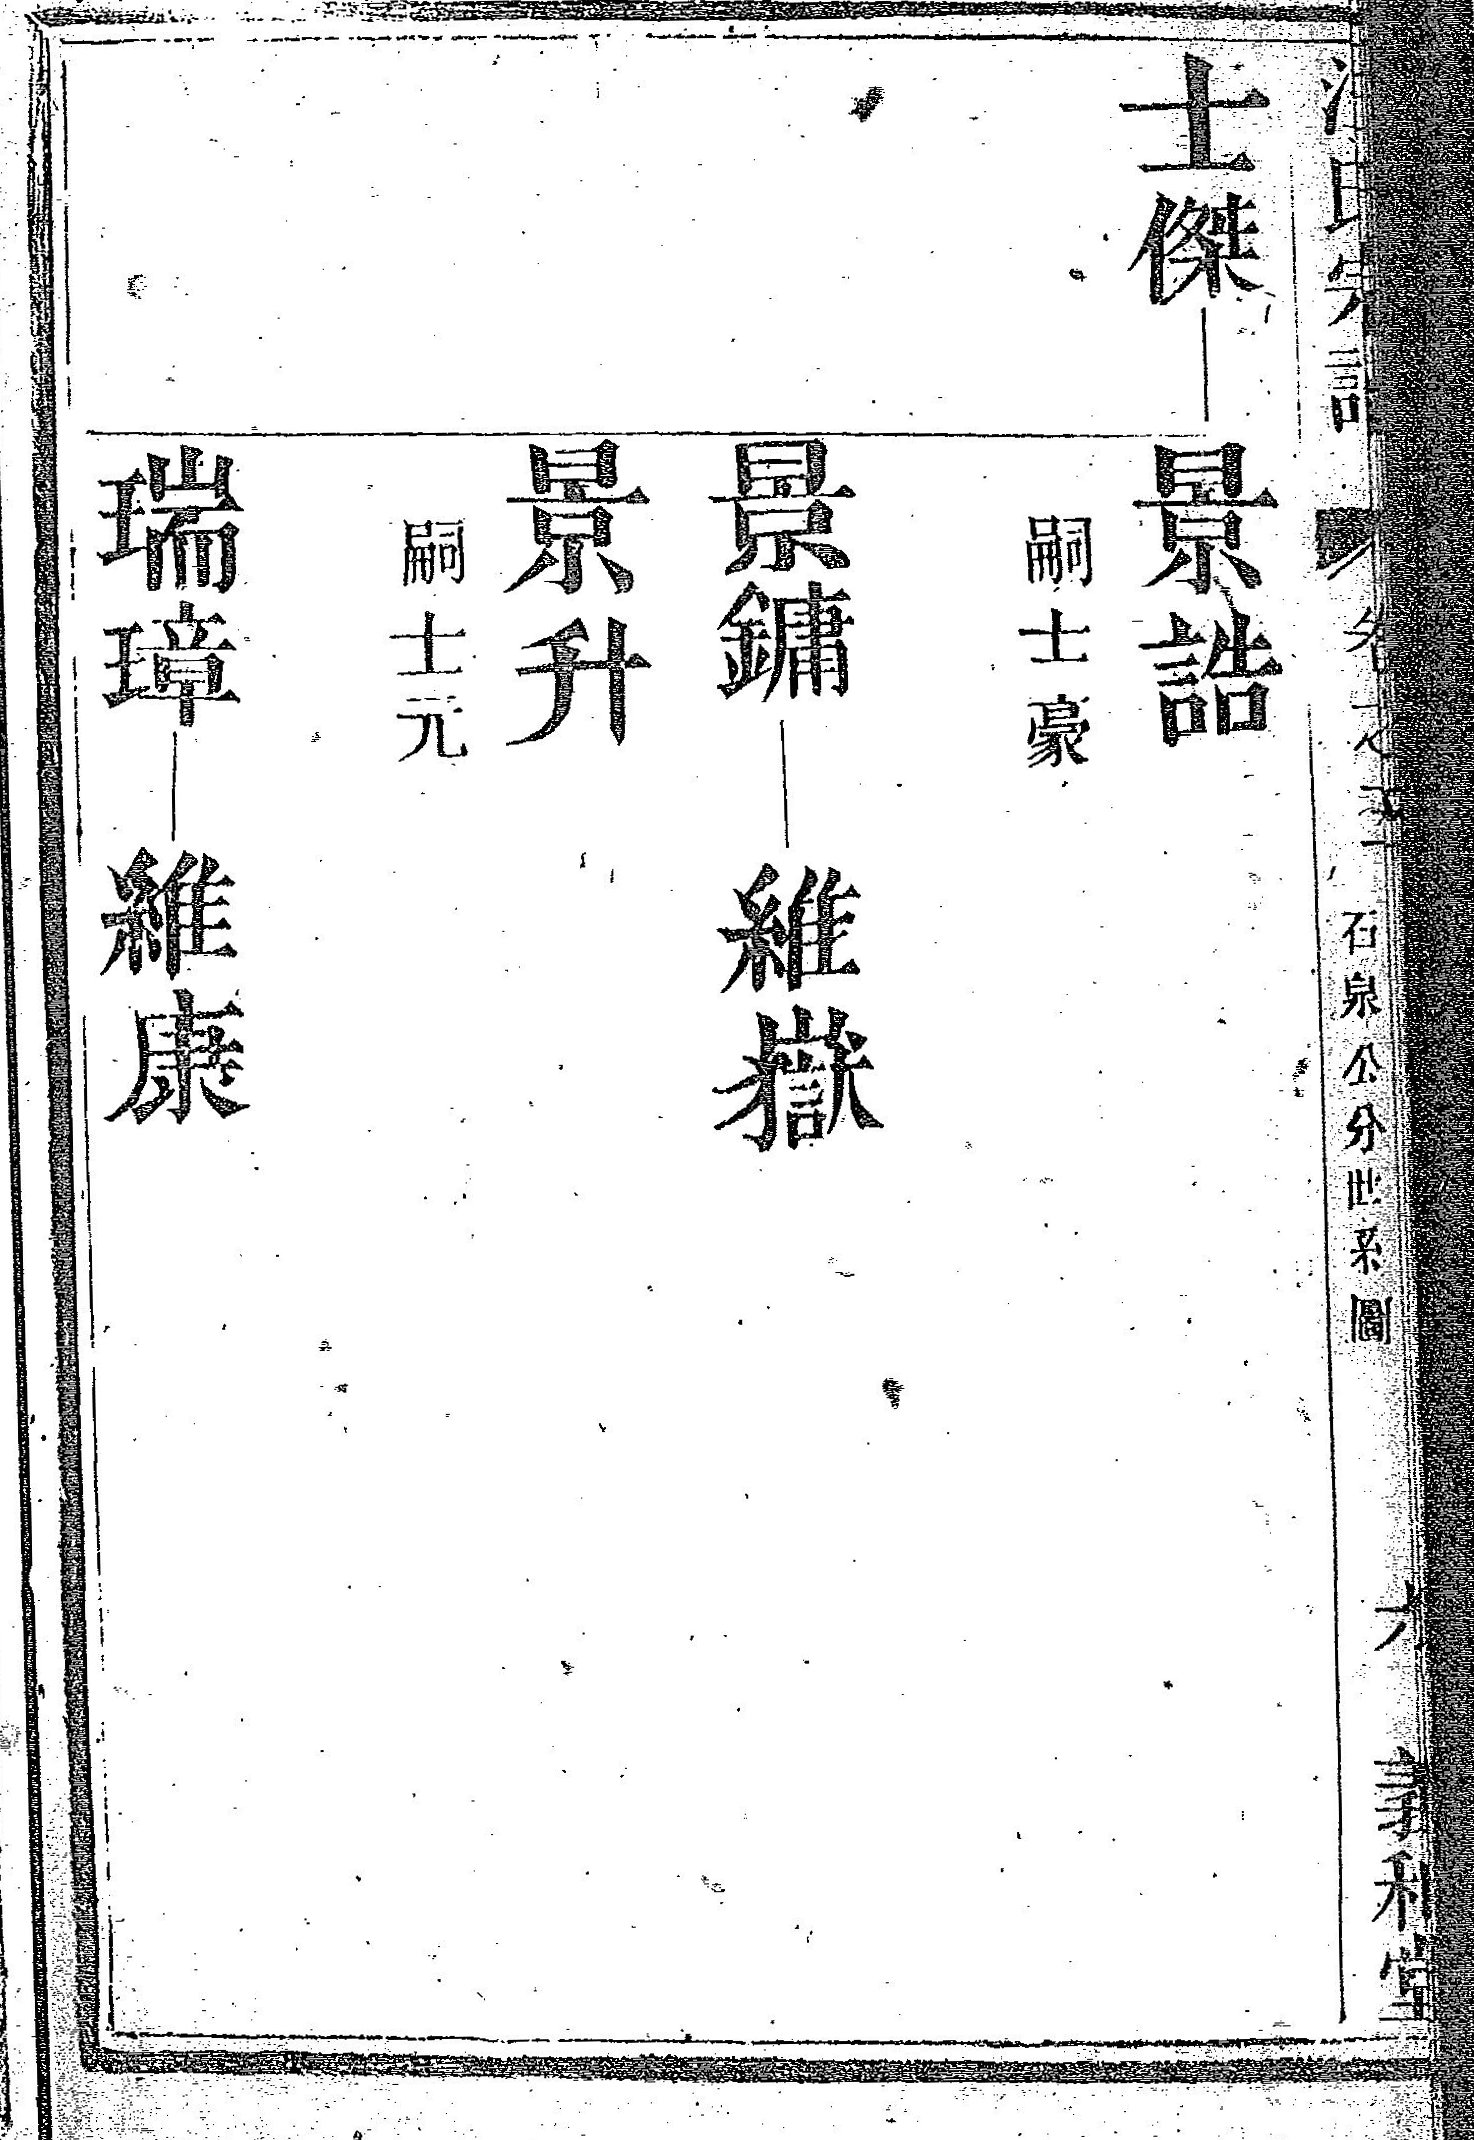 石泉公分世系圖
士傑
景誥
嗣士豪
景鏞
維嶽
景升
嗣士元
瑞璋
維康